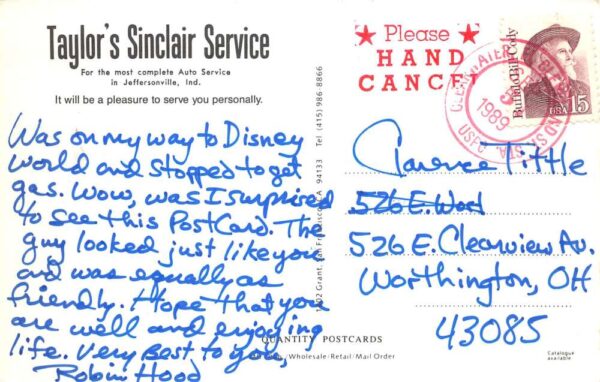 Taylor's Sinclair Service
For the most complete Auto Service
in Jeffersonville, Ind.
It will be a pleasure to serve you personally.
Was on my way to Disney
World and stopped to get
gas. Wow, was I surprised
to see this PostCard. The
guy looked just like you
and was equally as
friendly. Hope that you
are well and enjoying
life. Very best to you,
Robin Hood
1402 Grant, San Francisco, CA 94133 Tel (415) 986-8866
QUANTITY POSTCARDS
Wholesale/Retail/Mail Order
Catalogue
available
★ Please ★
HAND
CANCEL
Buffalo Bill Cody
USA 15
CLEARWATER
STA.
USPO
1989
Clarence Tittle
526 E. Wood
526 E. Clearview Av.
Worthington, OH
43085